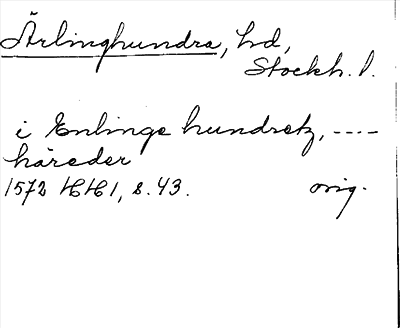 Ärlinghundra, hd,
Stockh. l.
i Erlinge hundretz, ----
häreder
1572 HH1, s. 43. orig.